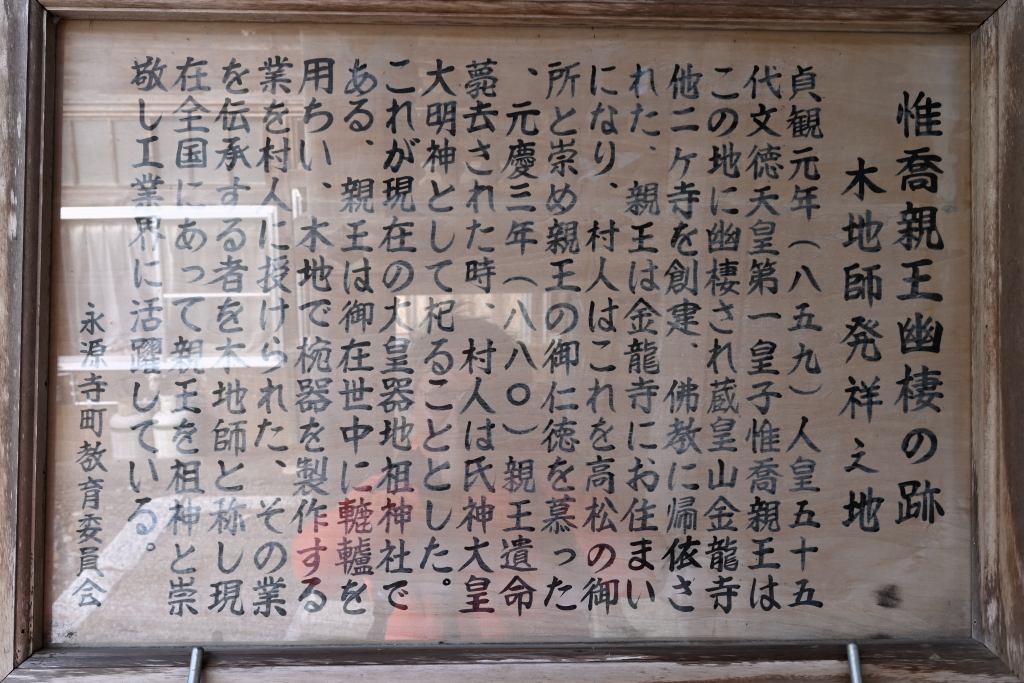 惟喬親王幽棲の跡
木地師発祥之地
貞観元年（八五九）人皇五十五
代文徳天皇第一皇子惟喬親王は
この地に幽棲され蔵皇山金龍寺
他二ヶ寺を創建、佛教に帰依さ
れた、親王は金龍寺にお住まい
になり、村人はこれを高松の御
所と崇め親王の御仁徳を慕った
、元慶三年（八八〇）親王遺命
薨去された時、村人は氏神大皇
大明神として祀ることとした。
これが現在の大皇器地祖神社で
ある、親王は御在世中に轆轤を
用ちい、木地で椀器を製作する
業を村人に授けられた、その業
を伝承する者を木地師と称し現
在全国にあって親王を祖神と崇
敬し工業界に活躍している。
永源寺町教育委員会